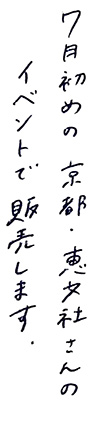 7月初めの京都・恵文社さんの
イベントで販売します.